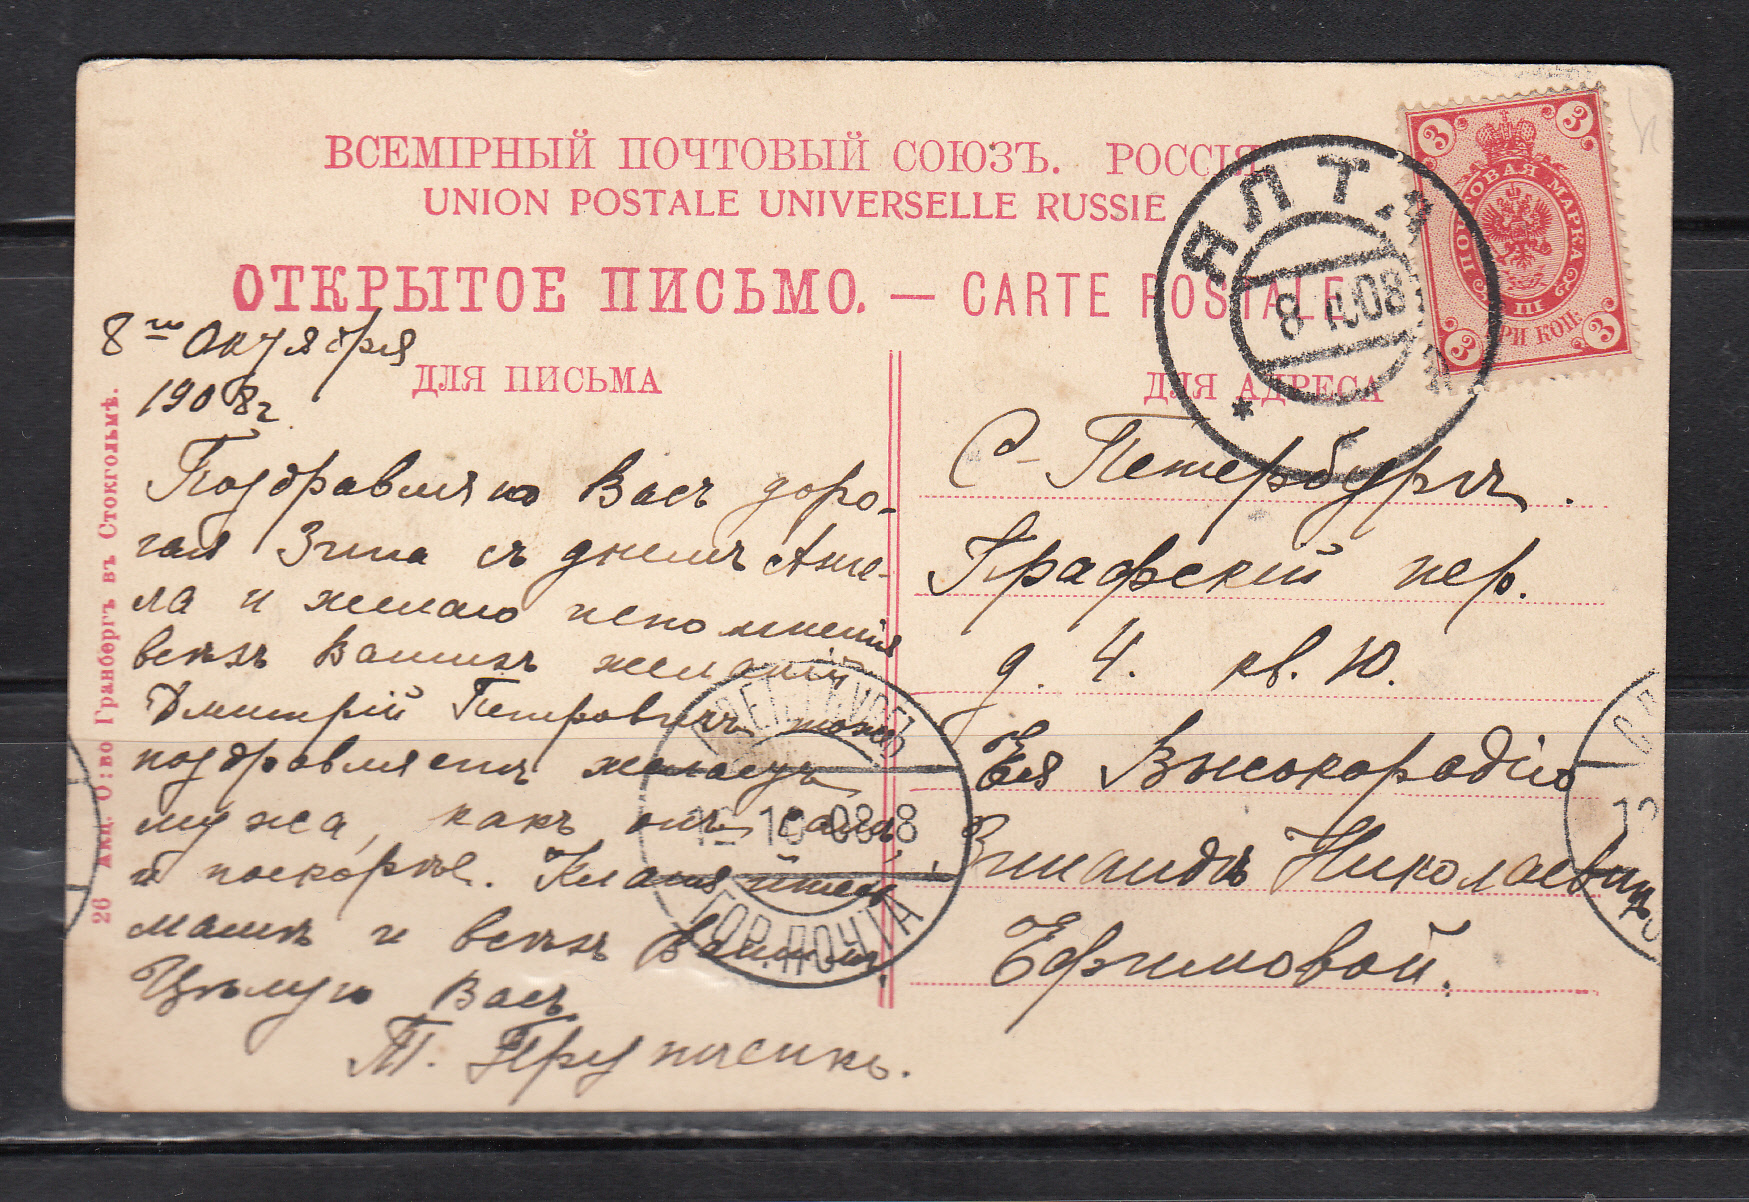 ВСЕМІРНЫЙ ПОЧТОВЫЙ СОЮЗЪ. РОССІЯ
UNION POSTALE UNIVERSELLE RUSSIE
ОТКРЫТОЕ ПИСЬМО. — CARTE POSTALE
ДЛЯ ПИСЬМА
8го Октября
1908 г
Поздравляю Васъ доро-
гая Зина съ днемъ Анге-
ла и желаю исполненія
всѣхъ Вашихъ желаній
Дмитрій Петровичъ тоже
поздравляетъ желаетъ
мужа, какъ онъ самъ,
и поскорѣе. Кланяйтесь
мамѣ и всѣмъ Вашимъ.
Цѣлую Васъ
Т.
ДЛЯ АДРЕСА
С-Петербургъ.
Графскій пер.
д. 4. кв. 10.
Ея Высокородію
Зинаидѣ Николаевнѣ
Ефимовой.
26 Акц. О:во Гранбергъ въ Стокгольмѣ.
ЯЛТА
8 10 08
3 3
ПОЧТОВАЯ МАРКА
ТРИ КОП.
3 3
12 10 08 8
ГОР. ПОЧТА